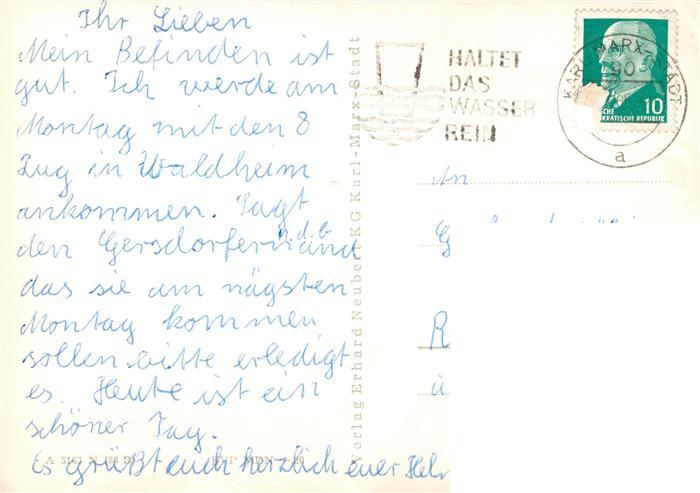 Ihr Lieben
Mein Befinden ist
gut. Ich werde am
Montag mit den 8
Zug in Waldheim
ankommen. Sagt
den Gersdorfern
das sie am nägsten
Montag kommen
sollen bitte erledigt
es. Heute ist ein
schöner Tag.
Es grüßt euch herzlich euer
Verlag Erhard Neubert KG Karl-Marx-Stadt
HALTET
DAS
WASSER
REIN
KARL-MARX-STADT
a
10
KRATISCHE REPUBLIK
An
G
R
ü